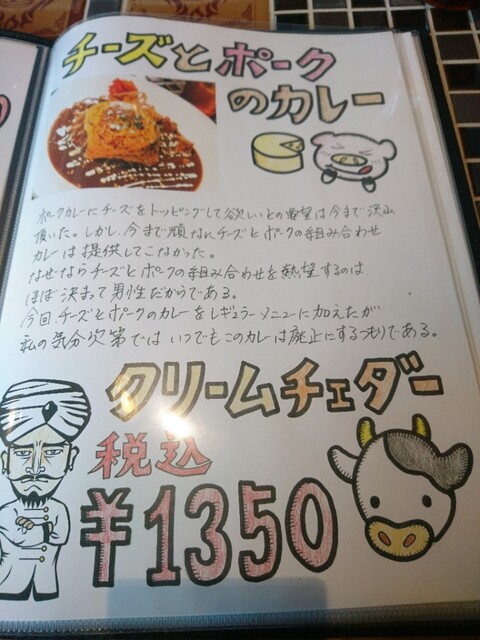 チーズとポーク
のカレー
ポークカレーにチーズをトッピングして欲しいとの要望は今まで沢山
頂いた。しかし、今まで頑なにチーズとポークの組み合わせ
カレーは提供してこなかった。
なぜならチーズとポークの組み合わせを熱望するのは
ほぼ決まって男性だからである。
今回、チーズとポークのカレーをレギュラーメニューに加えたが
私の気分次第ではいつでもこのカレーは廃止にするつもりである。
クリームチェダー
税込
¥1350